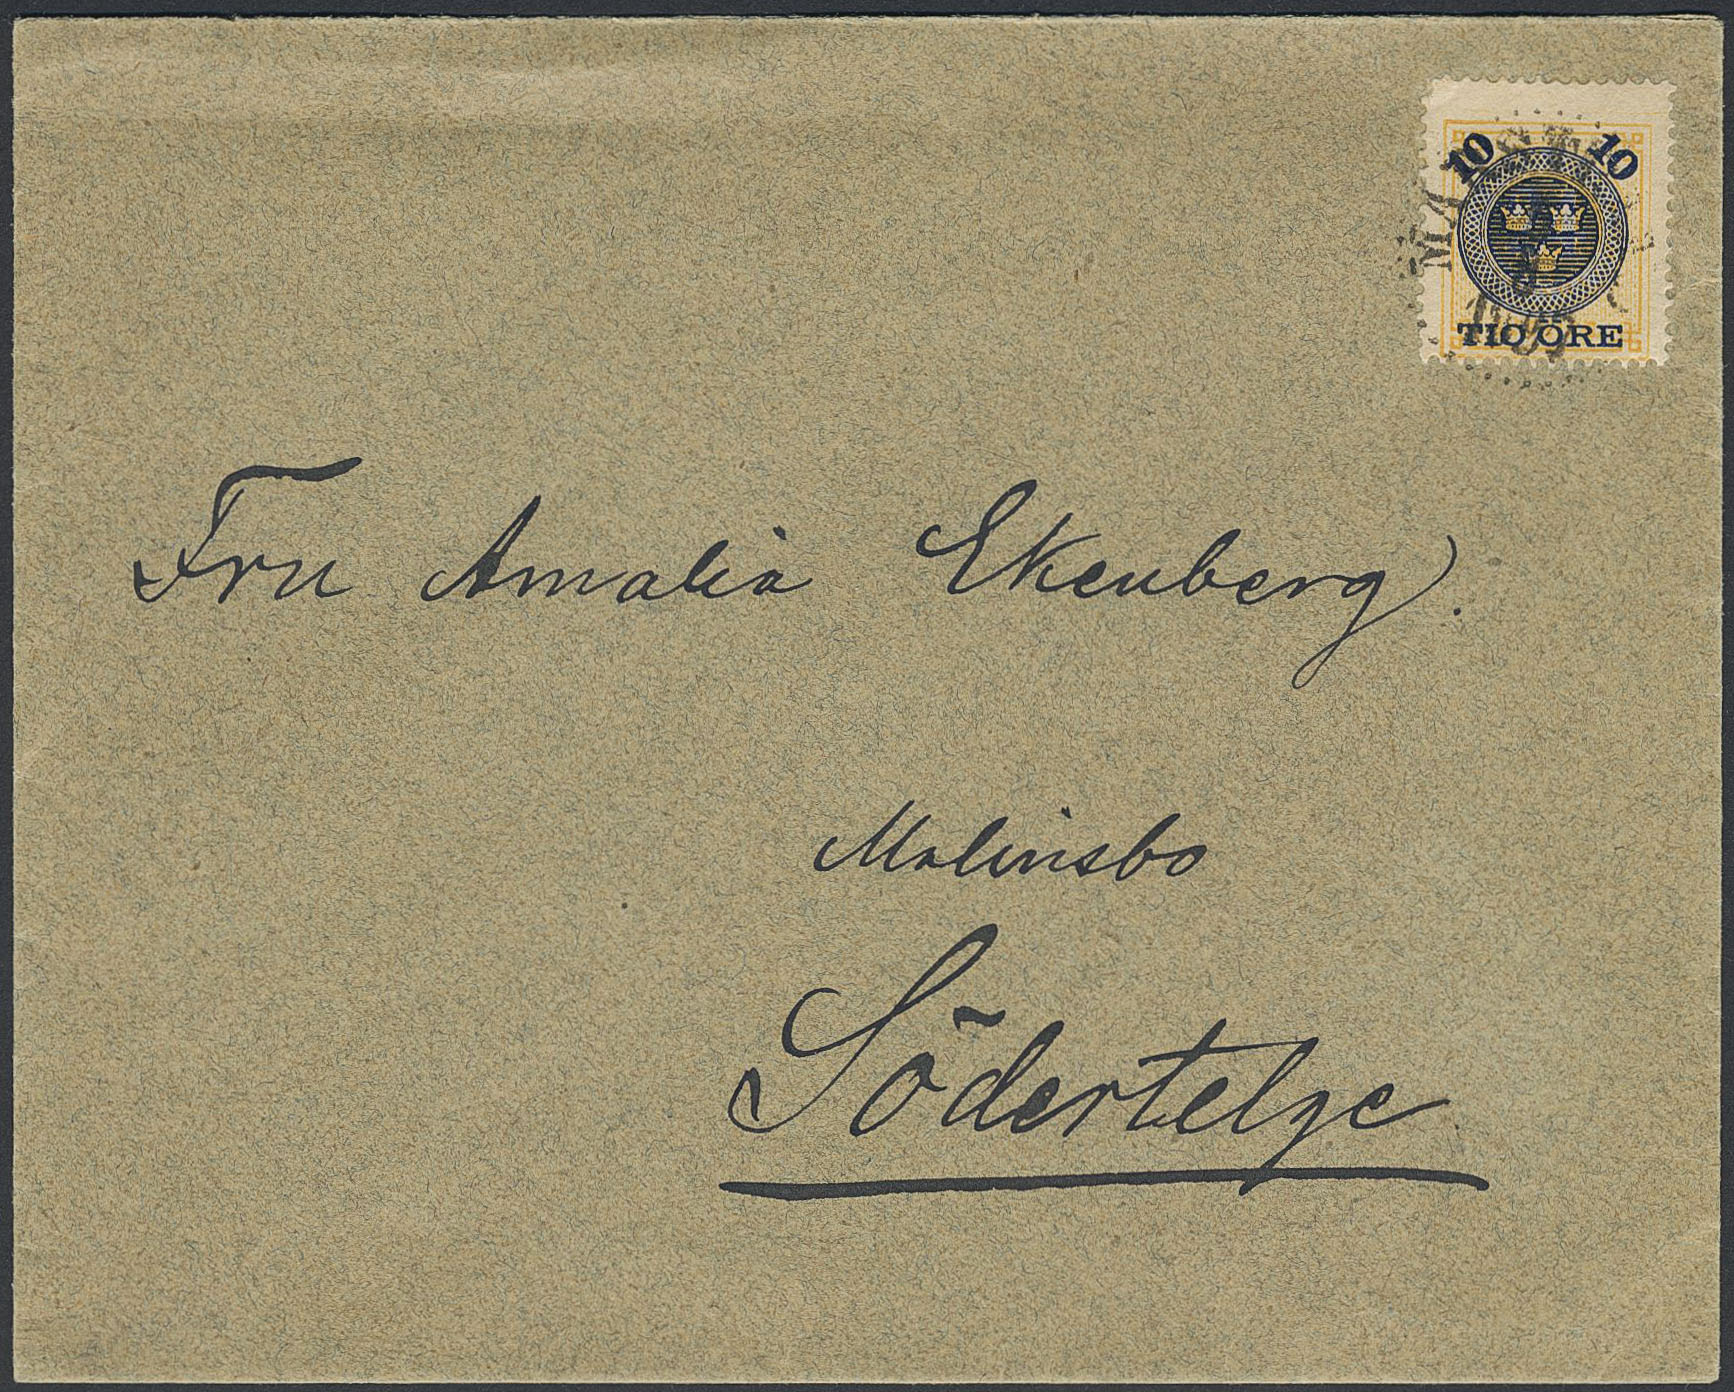 10 10
TIO ÖRE
Fru Amalia Ekenberg.
Malinsbo
Södertelge